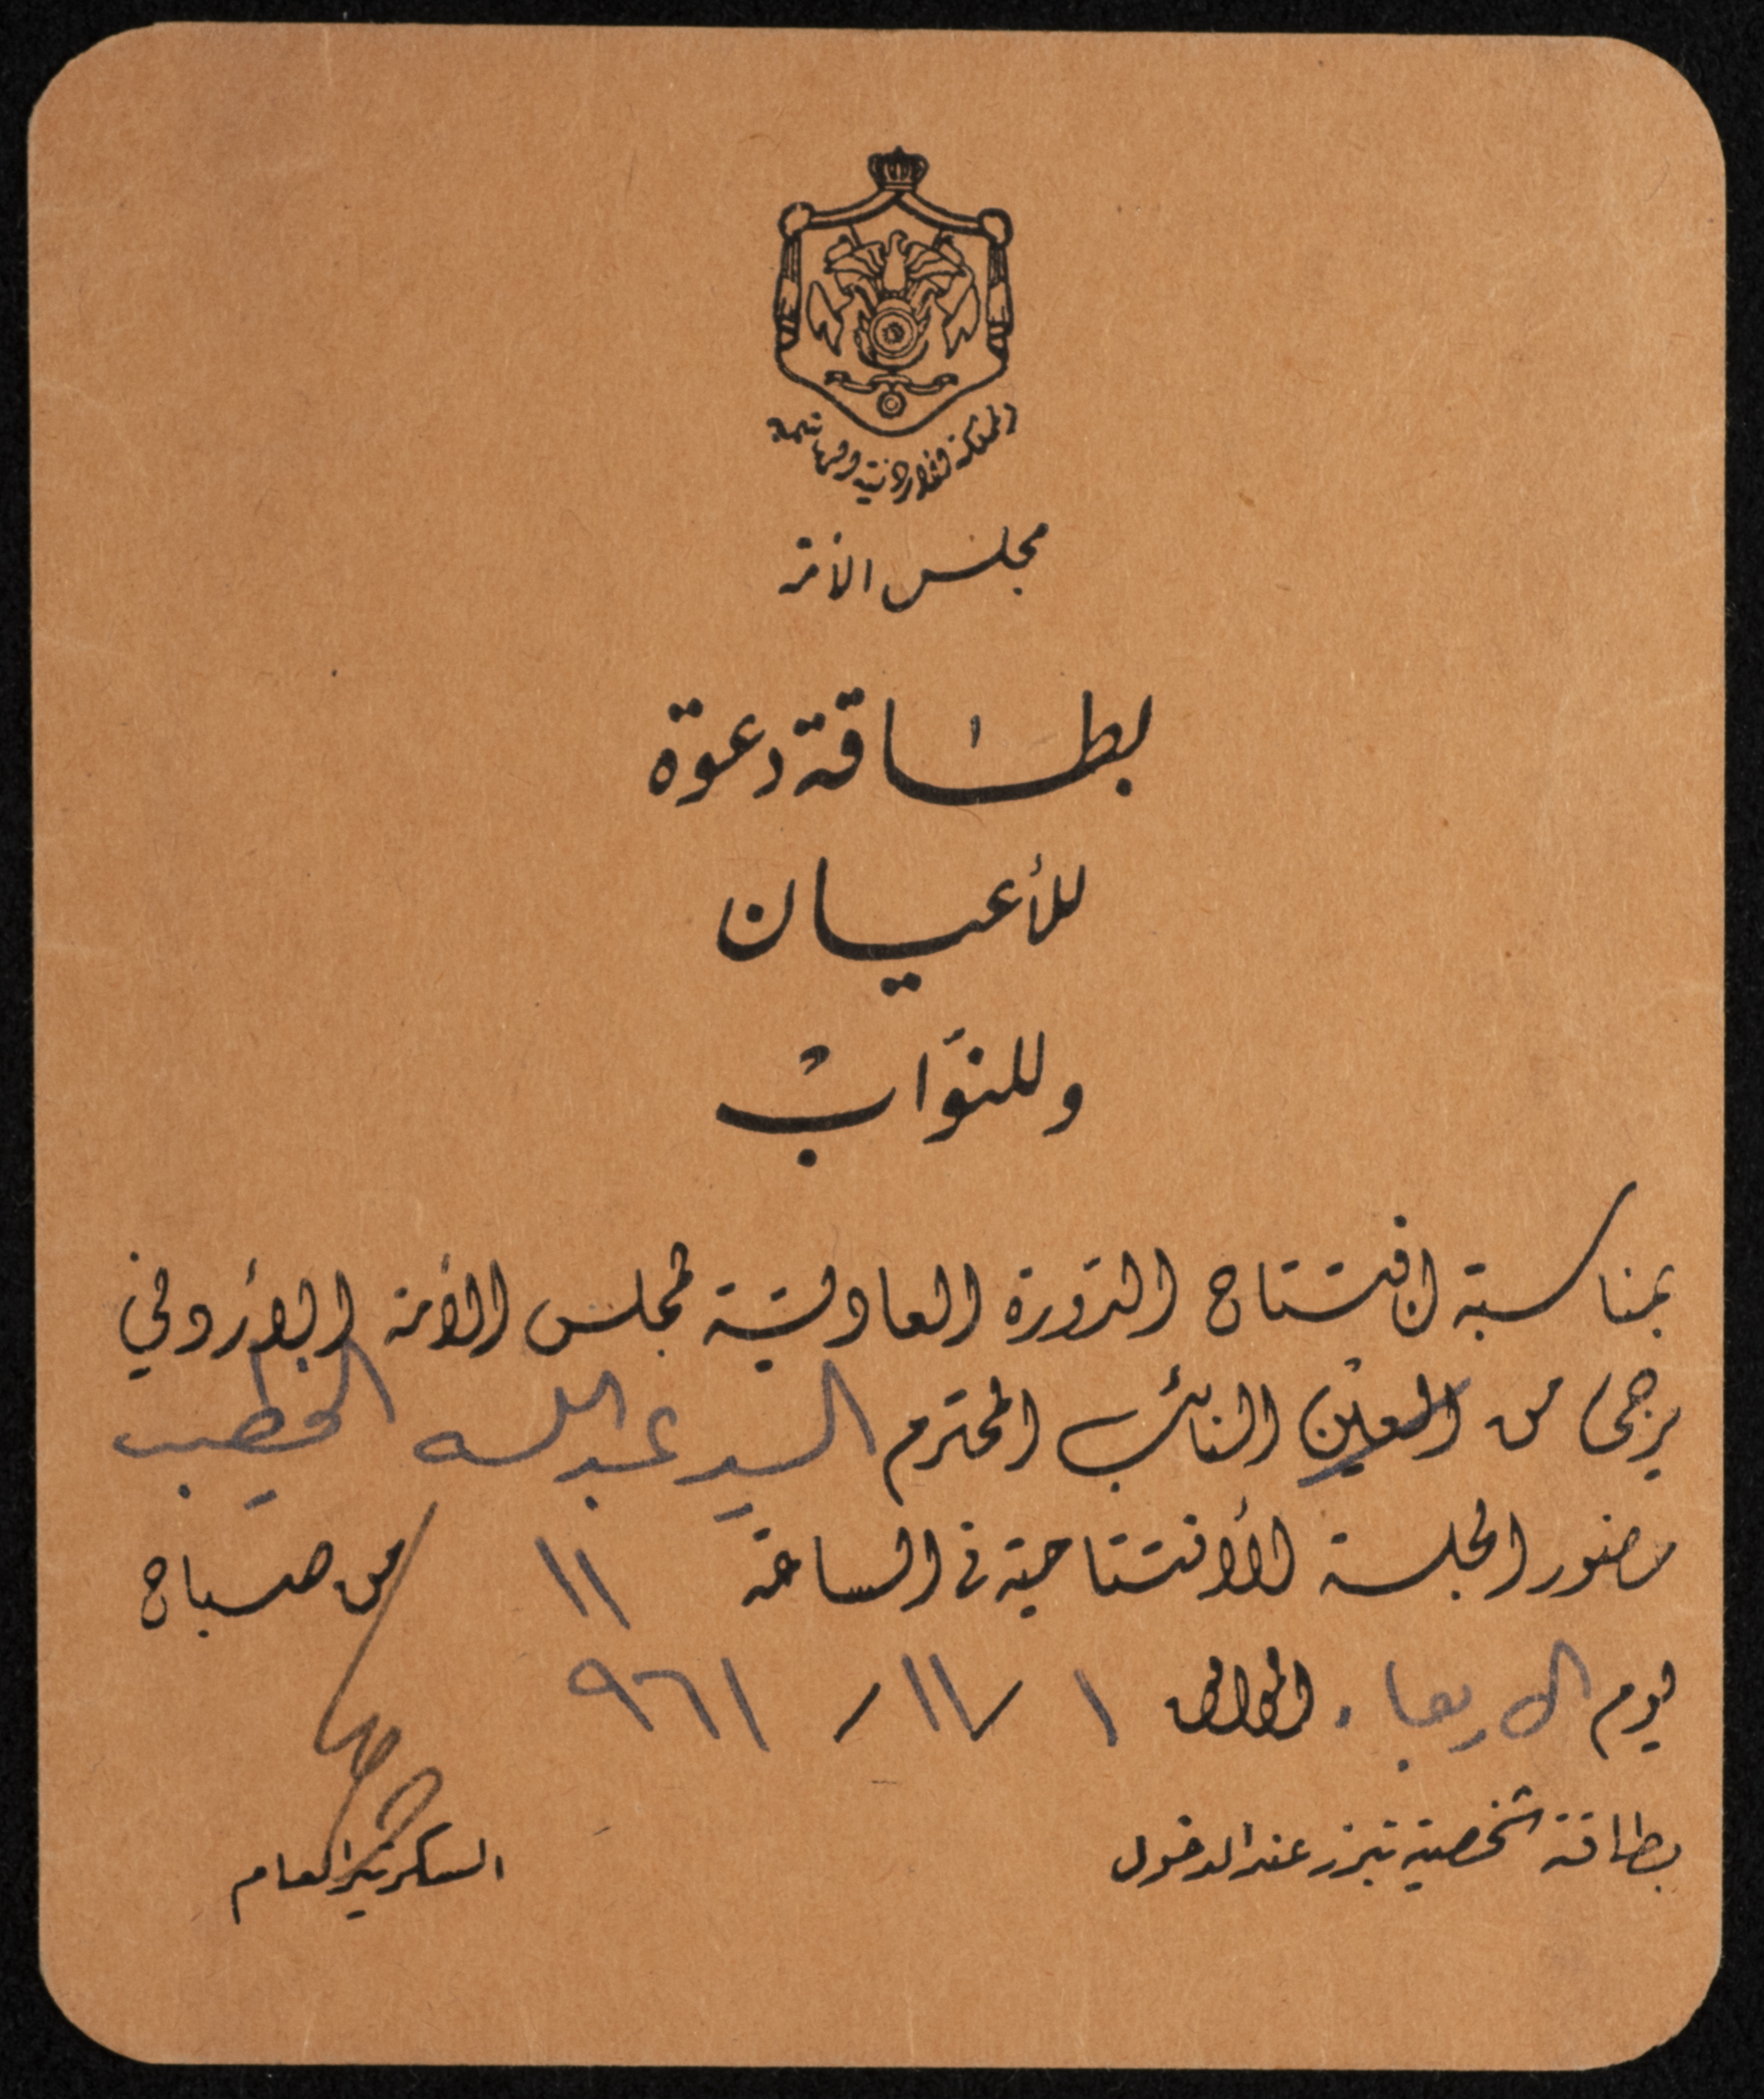 المملكة الأردنية الهاشمية
مجلس الأمة
بطاقة دعوة
للأعيان
وللنواب
بمناسبة افتتاح الدورة العادية لمجلس الأمة الأردني
يرجى من العين النائب المحترم السيد عبد الله الخطيب
حضور الجلسة الأفتتاحية في الساعة ١١ من صباح
يوم الاربعاء الموافق ١ / ١١ / ٩٦١
بطاقة شخصية تبرز عند الدخول
السكرتير العام